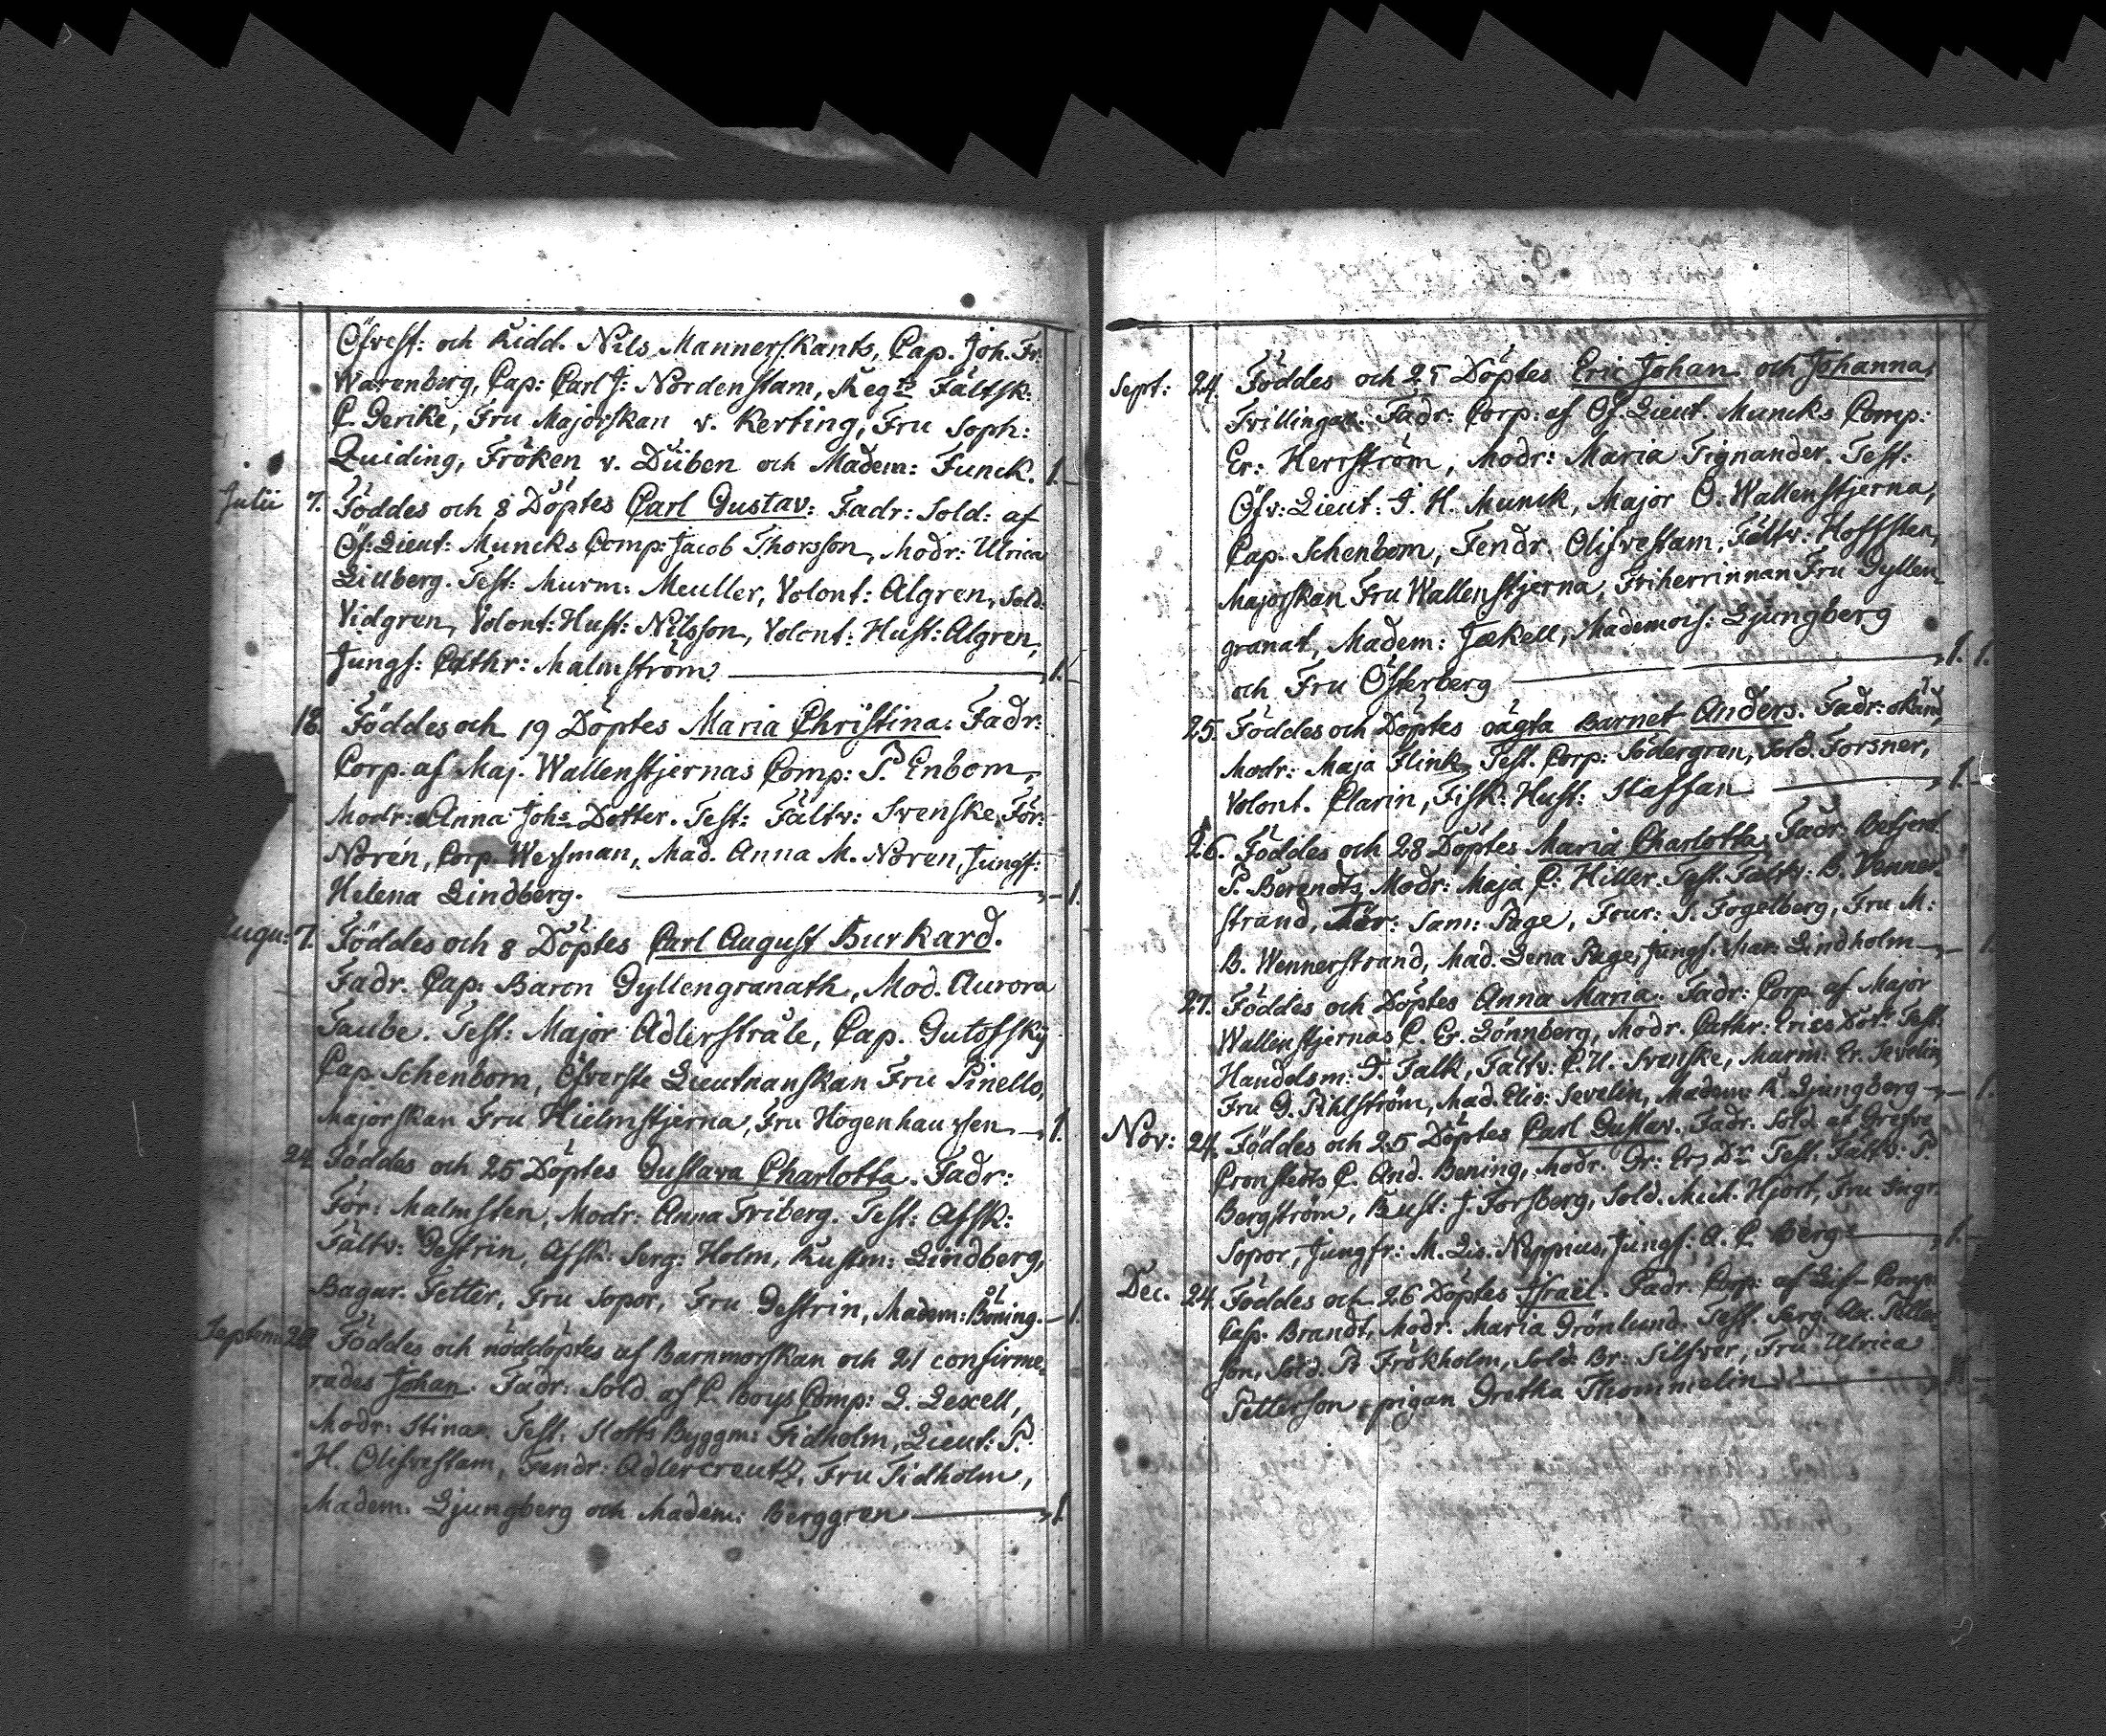 Öfvest: och Ridd. Nils Mannerskants, Cap. Joh. Fr:
Warenberg, Cap: Carl J: Nordenstam, Regts Fältsk:
C. Gerike, Fru Majorskan v. Kerting, Fru Soph:
Quiding, Fröken v. Düben och Madem: Funck. 1.
Julii 7. Föddes och 8 Döptes Carl Gustav: Fadr: Sold: af
Öf: Lieut: Muncks Comp: Jacob Thorsson, Modr: Ulrica
Lillberg. Test: Murm: Meuller, Volont: Algren, Sold.
Vidgren, Volont: Hust: Nilsson, Volont: Hust: Algren,
Jungf: Cathr: Malmström 1.
18. Föddes och 19 Döptes Maria Christina. Fadr:
Corp. af Maj. Wallenstjernas Comp: P. Enbom,
Modr: Anna Johs Dotter. Test: Fältv: Svenske,För:
Norén, Corp. Weysman, Mad. Anna M. Noren, Jungf:
Helena Lindberg. 1.
Augu: 7. Föddes och 8 Döptes Carl August Burkard.
Fadr. Cap: Baron Gyllengranath, Mod. Aurora
Taube. Test: Major Adlerstråle, Cap. Gutofsky
Cap Schenbom, Öfverste Lieutnanskan Fru Pinello,
Majorskan Fru Hielmstjerna, Fru Hogenhausen 1.
24 Föddes och 25 Döptes Gustava Charlotta. Fadr:
För: Malmsten, Modr: Anna Friberg. Test: Afsk:
Fältv: Gestrin, Afsk: Serg: Holm, Rustm: Lindberg,
Bagar. Tetter, Fru Sopor, Fru Gestrin, Madem: Böning. 1.
Septem: 20 Föddes och nöddöptes af Barnmorskan och 21 confirme,
rades Johan. Fadr: Sold af C Boys Comp: L. Lexell,
Modr: Stina. Test: Slotts Byggm: Tidholm, Lieut: P.
H. Olifvestam, Fendr: Adlercreutz, Fru Tidholm,
Madem. Ljungberg och Madem: Berggren 1.
Sept: 24. Föddes och 25 Döptes Eric Johan och Johanna,
Tvillingar. Fadr: Corp: af Öf. Lieut. Muncks Comp:
Er: Herrström, Modr: Maria Tignander. Test:
Öfv: Lieut: J. H. Munck, Major O. Wallenstjerna,
Cap. Schenbom, Fendr. Olifvestam, Fältv: Hoffsten,
Majorskan Fru Wallenstjerna, Friherrinnan Fru Gyllen-
granat, Madem: Jækell, Mademois: Ljungberg
och Fru Österberg 1. 1.
25. Föddes och Döptes oägta Barnet Anders. Fadr: okänd,
Modr: Maja Flink, Test. Corp: Södergren, Sold. Forsner,
Volont. Clarin, Fisk: Hust: Staffan 1.
26. Föddes och 28 Döptes Maria Charlotta. Fadr: Betjent
P. Berendts, Modr: Maja C: Hiller. Test. Fältv: B. Venner-
strand, Mur: Sam: Page, Four: S. Fogelberg, Fru M:
B. Wennerstrand, Mad. Lena Page, Jungf. Mar: Lindholm 1.
27. Föddes och Döptes Anna Maria. Fadr: Corp af Major
Wallenstjernas C. Er. Lönnberg, Modr. Cathr: Erics Dotr. Test:
Handelsm: J. Falk, Fältv: C. U. Svenske, Murm: Er. Sevelin,
Fru G. Pihlström, Mad. Elis: Sevelin, Madem: K. Ljungberg 1.
Nov: 24. Föddes och 25 Döptes Carl Gustav. Fadr. Sold af Grefve
Cronstedts C. And. Bening, Modr. Gr: Ers Dr. Test: Fältv: P.
Bergström, Rust: J. Forsberg, Sold. Mich. Hjort, Fru Ingr.
Sopor, Jungfr: M. Lis. Neppius, Jungf: A. C. Berg 1.
Dec. 24. Föddes och 26 Döptes Israel. Fadr. Corp: af Lif-Comp:
Casp. Brandt, Modr: Maria Grönlund. Test. Serg: Petter-
son, Sold. P. Frökholm, Sold: Br: Silfver, Fru Ulrica
Petterson, pigan Gretha Thommelin 1.